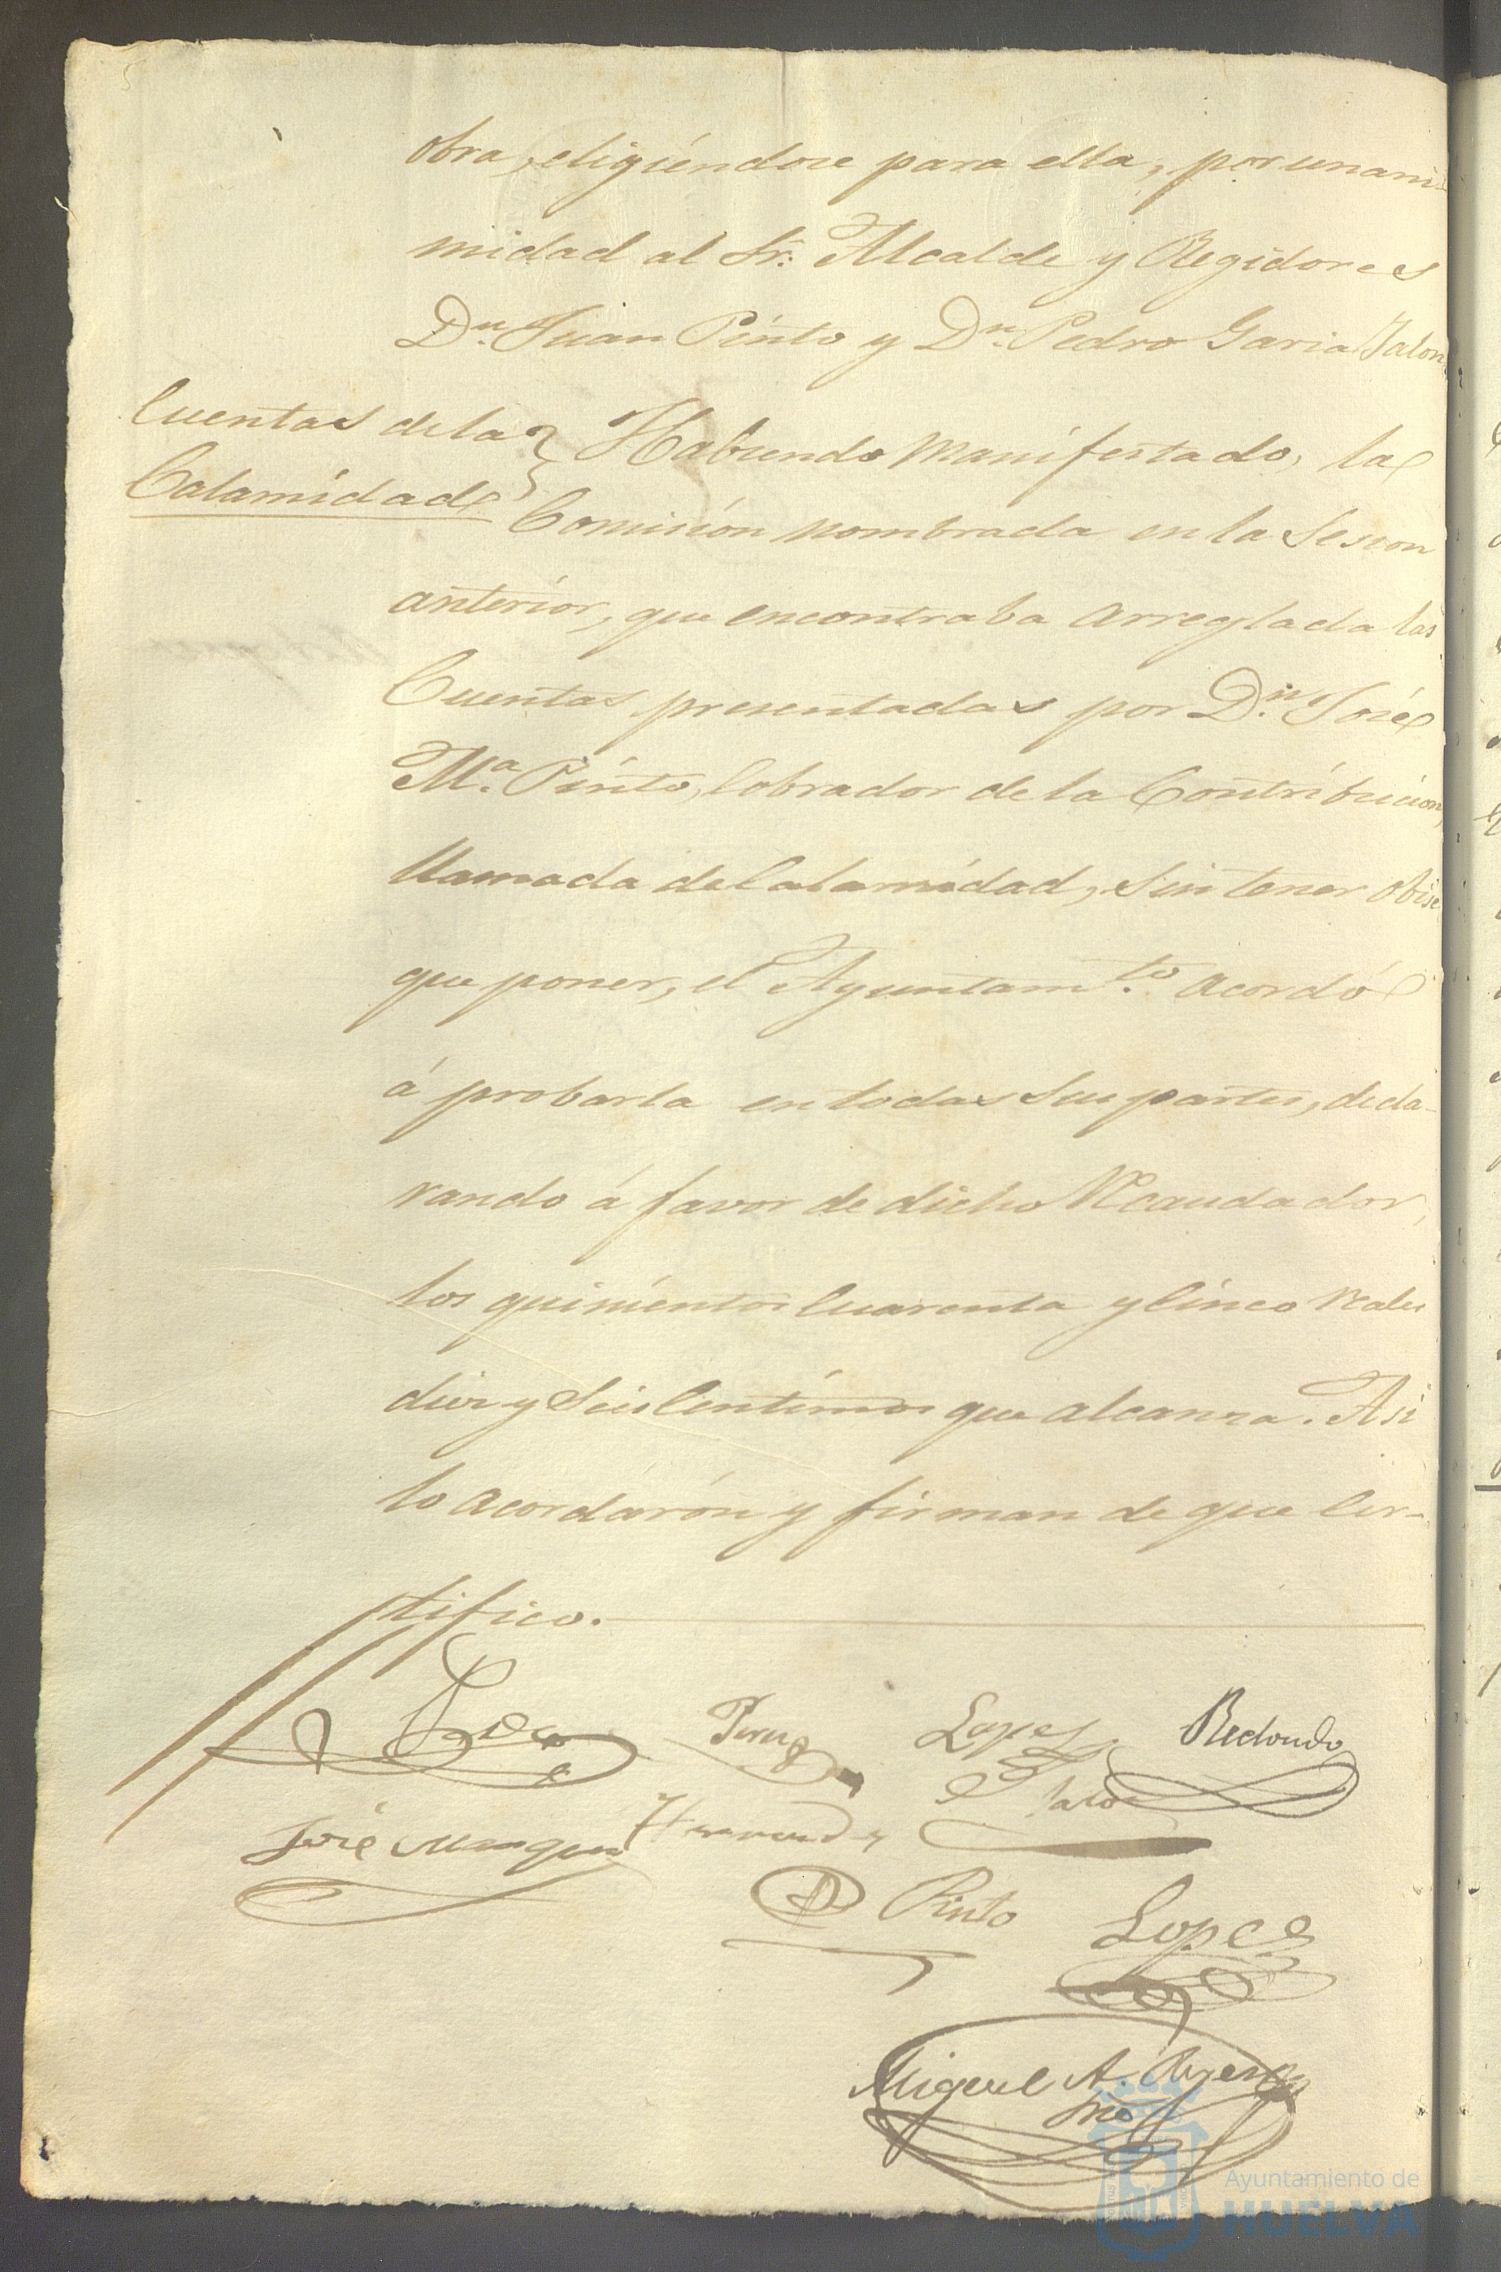 obra, eligiéndose para ella, por unani-
midad al Sr. Alcalde y Regidores
Dn. Juan Pinto y Dn. Pedro Garia Jalon
Cuentas de la
Calamidad
Habiendo manifestado, la
Comision nombrada en la Sesion
anterior, que encontraba arreglada las
Cuentas presentadas por Dn. José
Ma. Pinto, Cobrador de la Contribucion,
llamada de Calamidad, sin tener
que poner, el Ayuntamto. acordó
á probarla en todas sus partes, decla-
rando á favor de dicho Recaudador,
los quinientos Cuarenta y Cinco reales
diez y Seis Centimos que alcanza. Asi
lo acordarón y firman de que Cer-
tifico.
Lopez Redondo
Jalon
José
Pinto
Lopez
Miguel A.
Srio
Ayuntamiento de
HUELVA